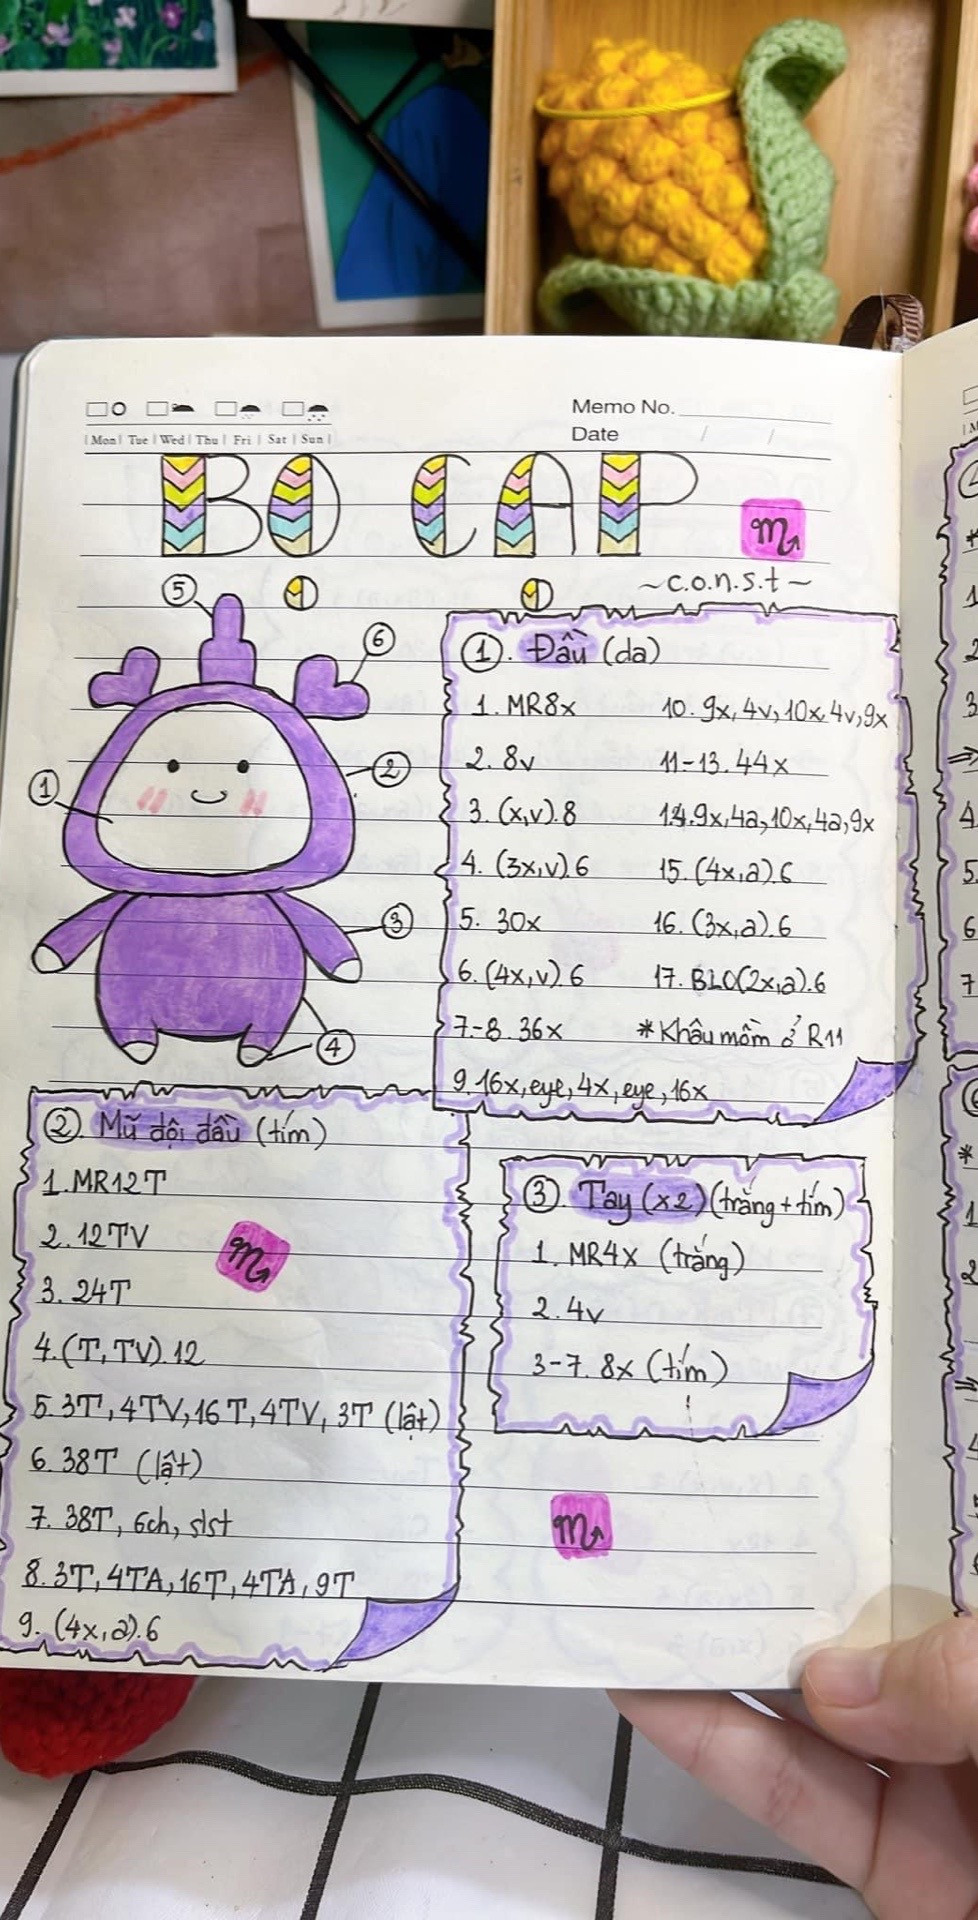 Memo No.
Mon Tue Wed Thu Fri Sat Sun
Date / /
BỌ CẠP
~c.o.n.s.t~
5
6
2
1
3
4
1. Đầu (da)
1. MR8x
2. 8v
3. (x,v).8
4. (3x,v).6
5. 30x
6. (4x,v).6
7-8. 36x
9. 16x, eye, 4x, eye, 16x
10. 9x, 4v, 10x, 4v, 9x
11-13. 44x
14. 9x, 4a, 10x, 4a, 9x
15. (4x,a).6
16. (3x,a).6
17. BLO(2x,a).6
*Khâu mồm ở R11
2. Mũ đội đầu (tím)
1. MR12T
2. 12TV
3. 24T
4. (T, TV).12
5. 3T, 4TV, 16T, 4TV, 3T (lật)
6. 38T (lật)
7. 38T, 6ch, slst
8. 3T, 4TA, 16T, 4TA, 9T
9. (4x,a).6
3. Tay (x2) (trắng + tím)
1. MR4x (trắng)
2. 4v
3-7. 8x (tím)